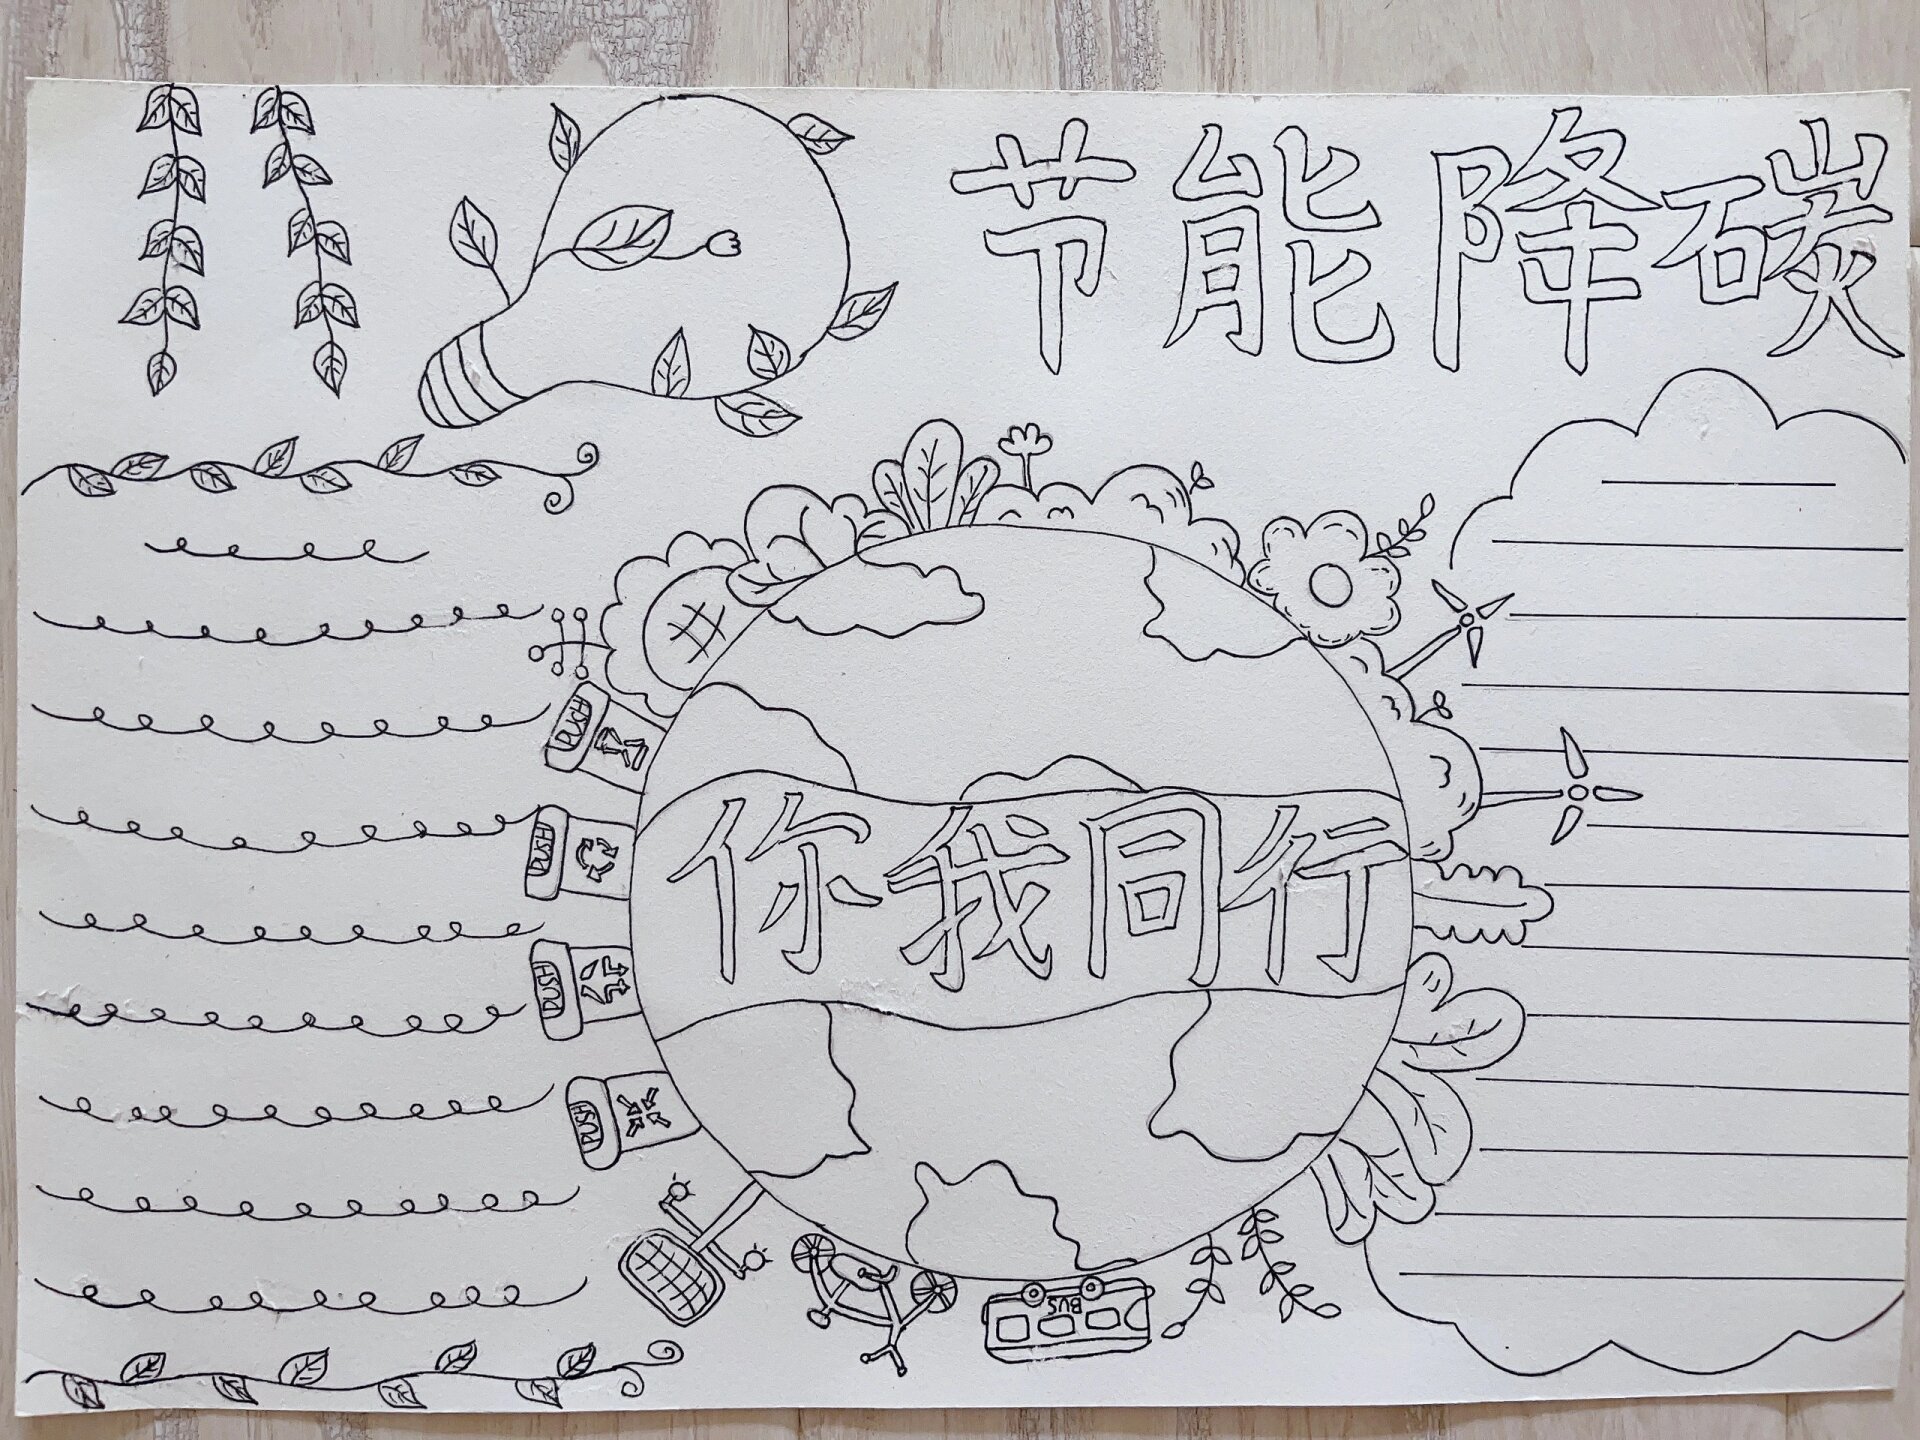 节能降碳
PUSH
PUSH
你我同行
PUSH
PUSH
BUS